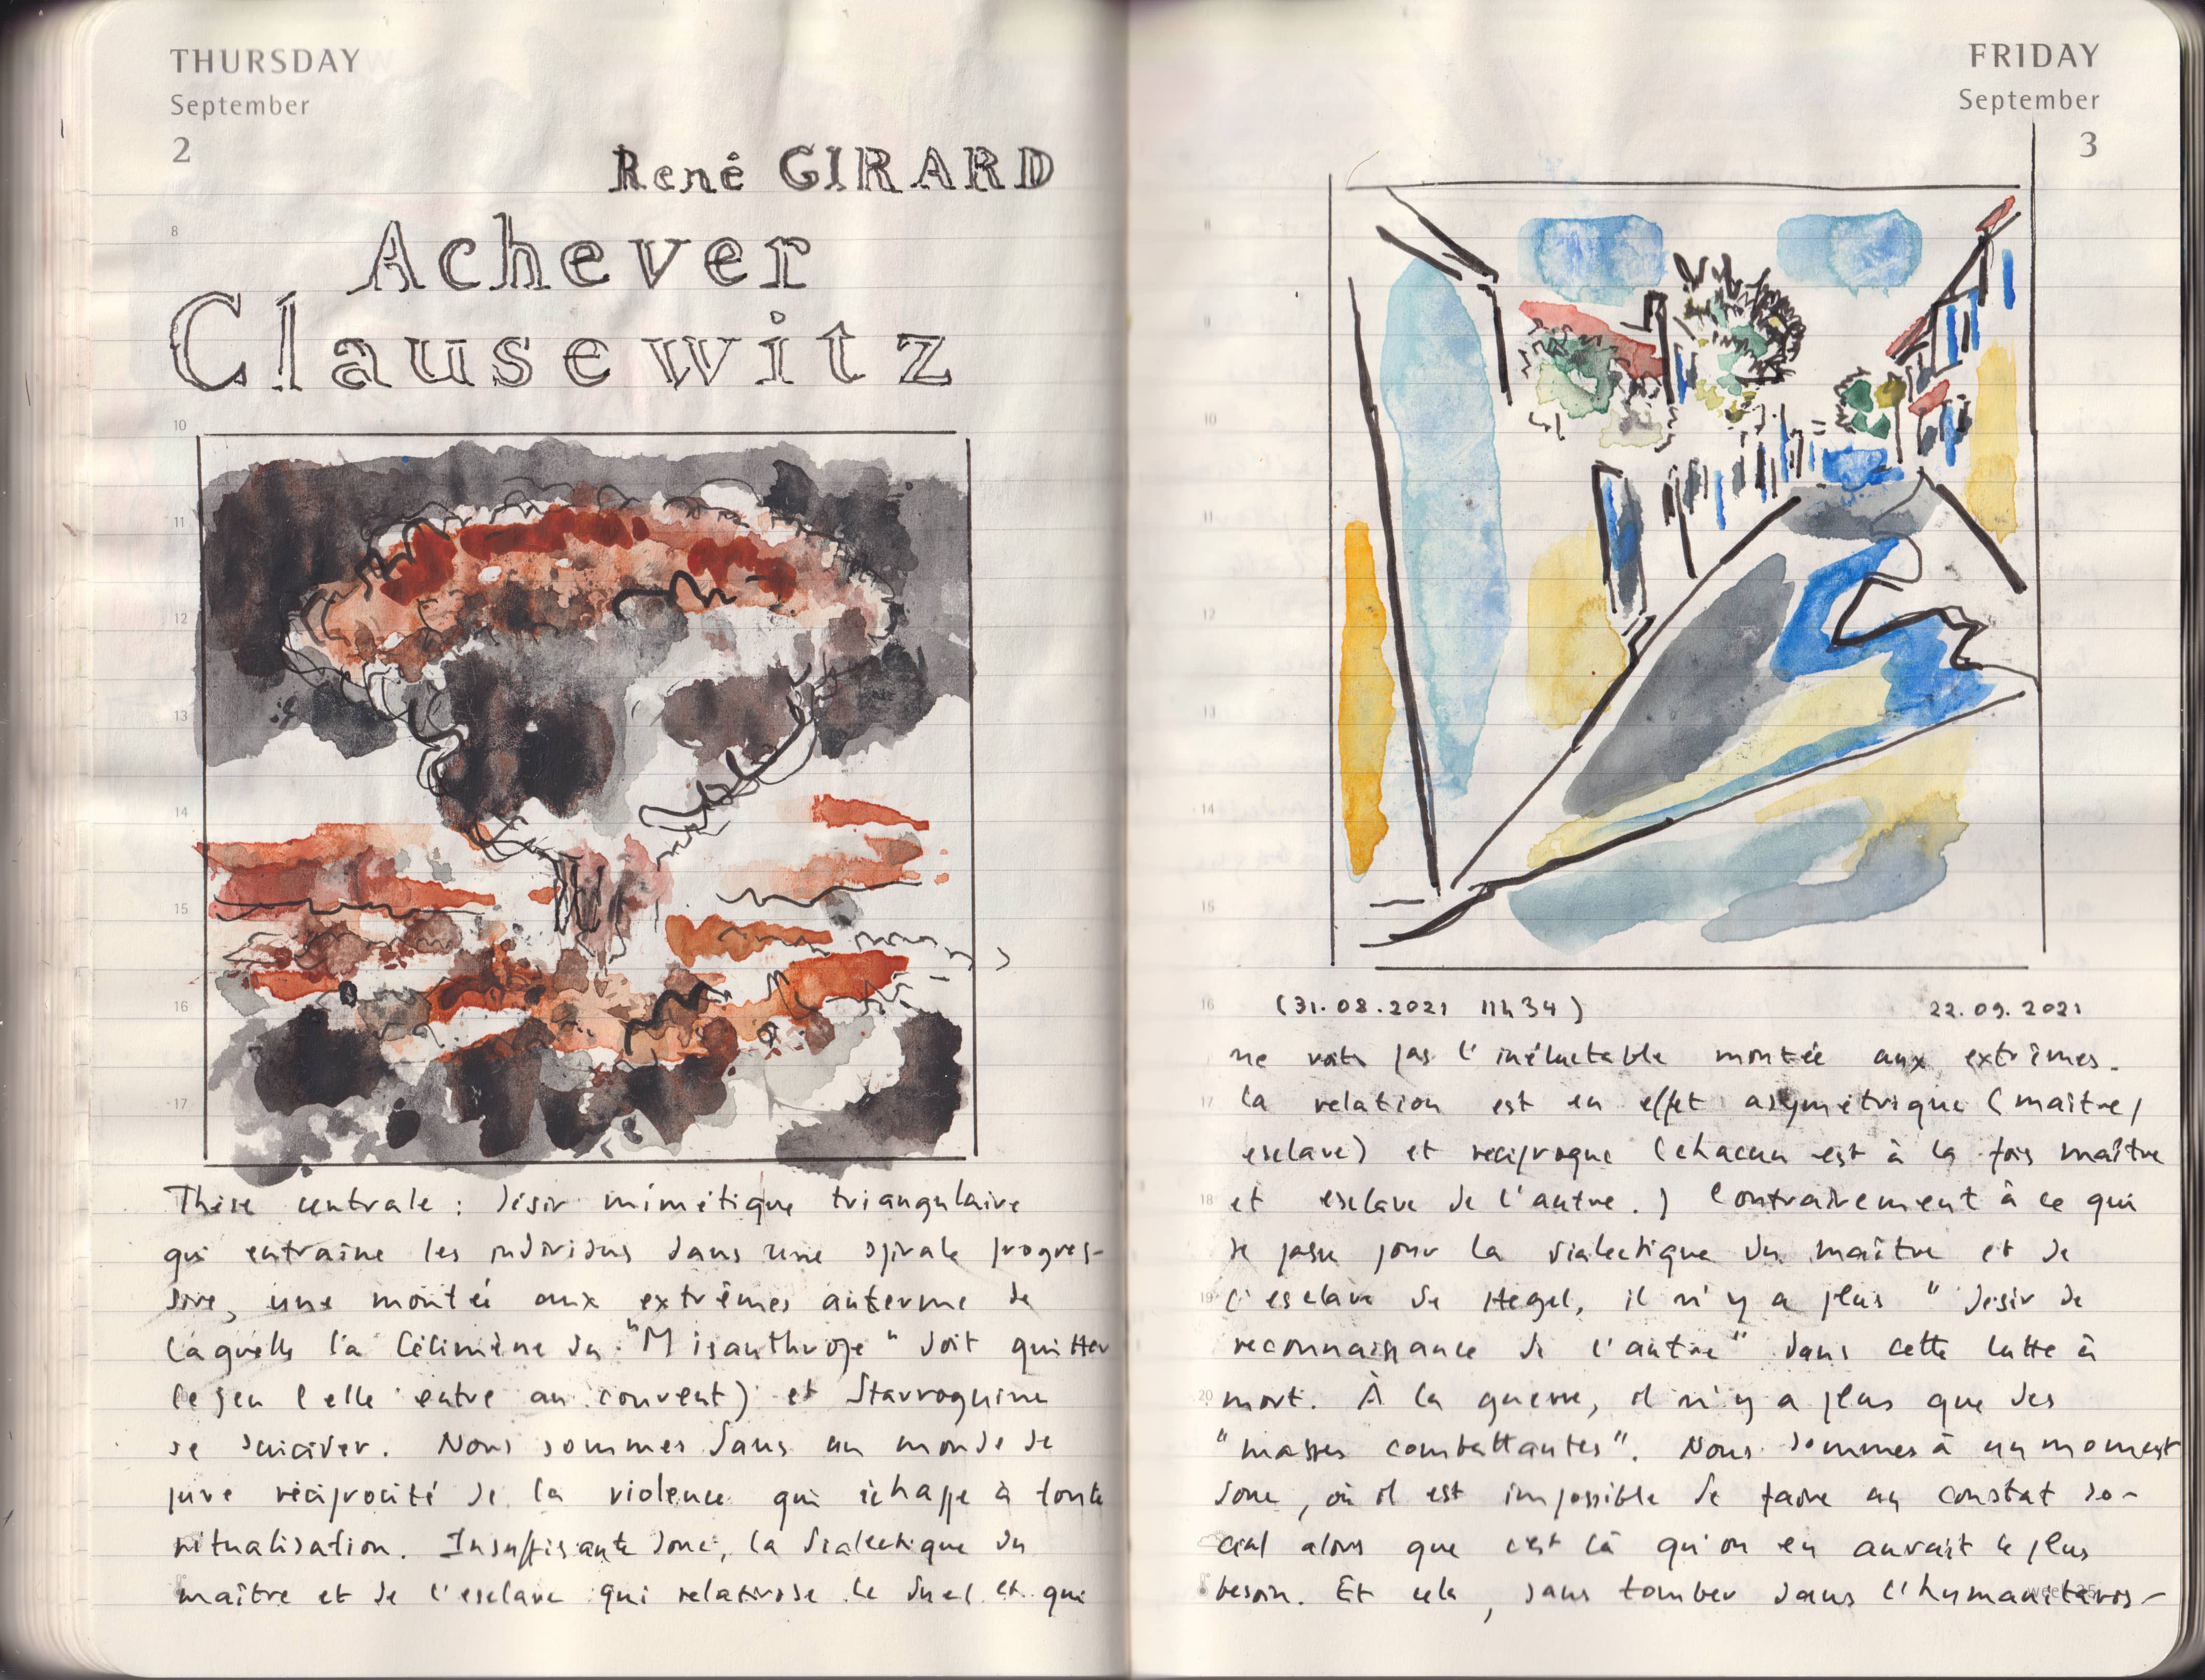 THURSDAY
September
2
René GIRARD
Achever
Clausewitz
8
10
11
12
13
14
15
16
17
Thèse centrale : désir mimétique triangulaire
qui entraîne les individus dans une spirale progres-
sive, une montée aux extrêmes au terme de
laquelle la Célimène du "Misanthrope" doit quitter
le jeu (elle entre au couvent) et Stavroguine
se suicider. Nous sommes dans un monde de
pure réciprocité de la violence qui échappe à toute
ritualisation. Insuffisante donc, la dialectique du
maître et de l'esclave qui relativise le duel et qui
FRIDAY
September
3
8
9
10
11
12
13
14
15
16
(31.08.2021 11h34) 22.09.2021
ne voit pas l'inéluctable montée aux extrêmes.
17
La relation est en effet asymétrique (maître/
esclave) et réciproque (chacun est à la fois maître
18
et esclave de l'autre.) Contrairement à ce qui
se passe pour la dialectique du maître et de
19
l'esclave de Hegel, il n'y a plus "désir de
reconnaissance de l'autre" dans cette lutte à
20
mort. À la guerre, il n'y a plus que des
"masses combattantes". Nous sommes à un moment
donc, où il est impossible de faire un constat so-
cial alors que c'est là qu'on en aurait le plus
besoin. Et cela, sans tomber dans l'humanitaris-
week 35